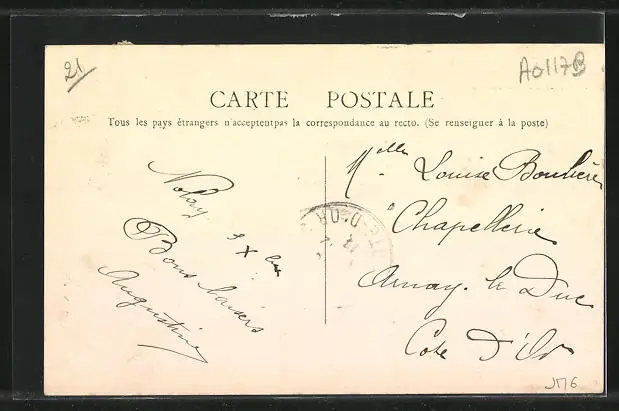 21
A0117B
CARTE POSTALE
Tous les pays étrangers n'acceptent pas la correspondance au recto. (Se renseigner à la poste)
Nolay
9 Xbre
Bons baisers
Augustine
Melle Louise Boulière
Chapellerie
Arnay-le Duc
Côte D'Or
COTE-D'OR
JM6